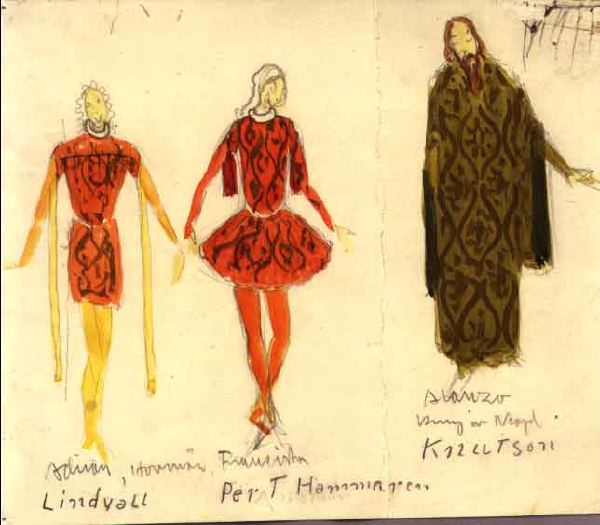 Adrian, Hovmän, Francisko
Lindvall
Per T Hammarren
Alonzo
Kung av Neapel
Knutson